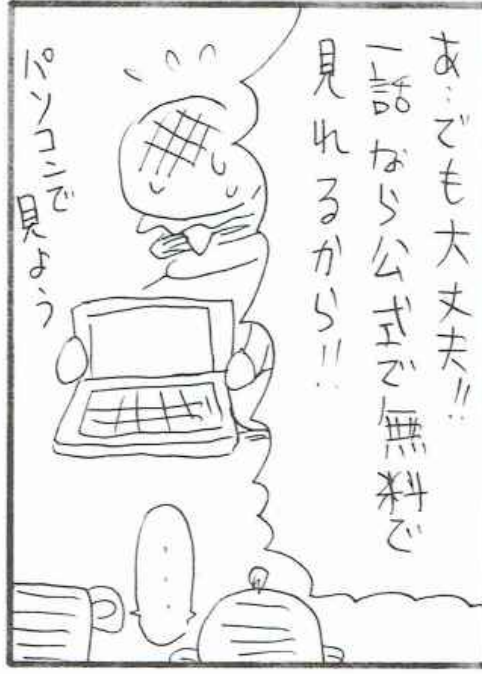 あ…でも大丈夫!!
一話なら公式で無料で
見れるから!!
パソコンで
見よう
・・・